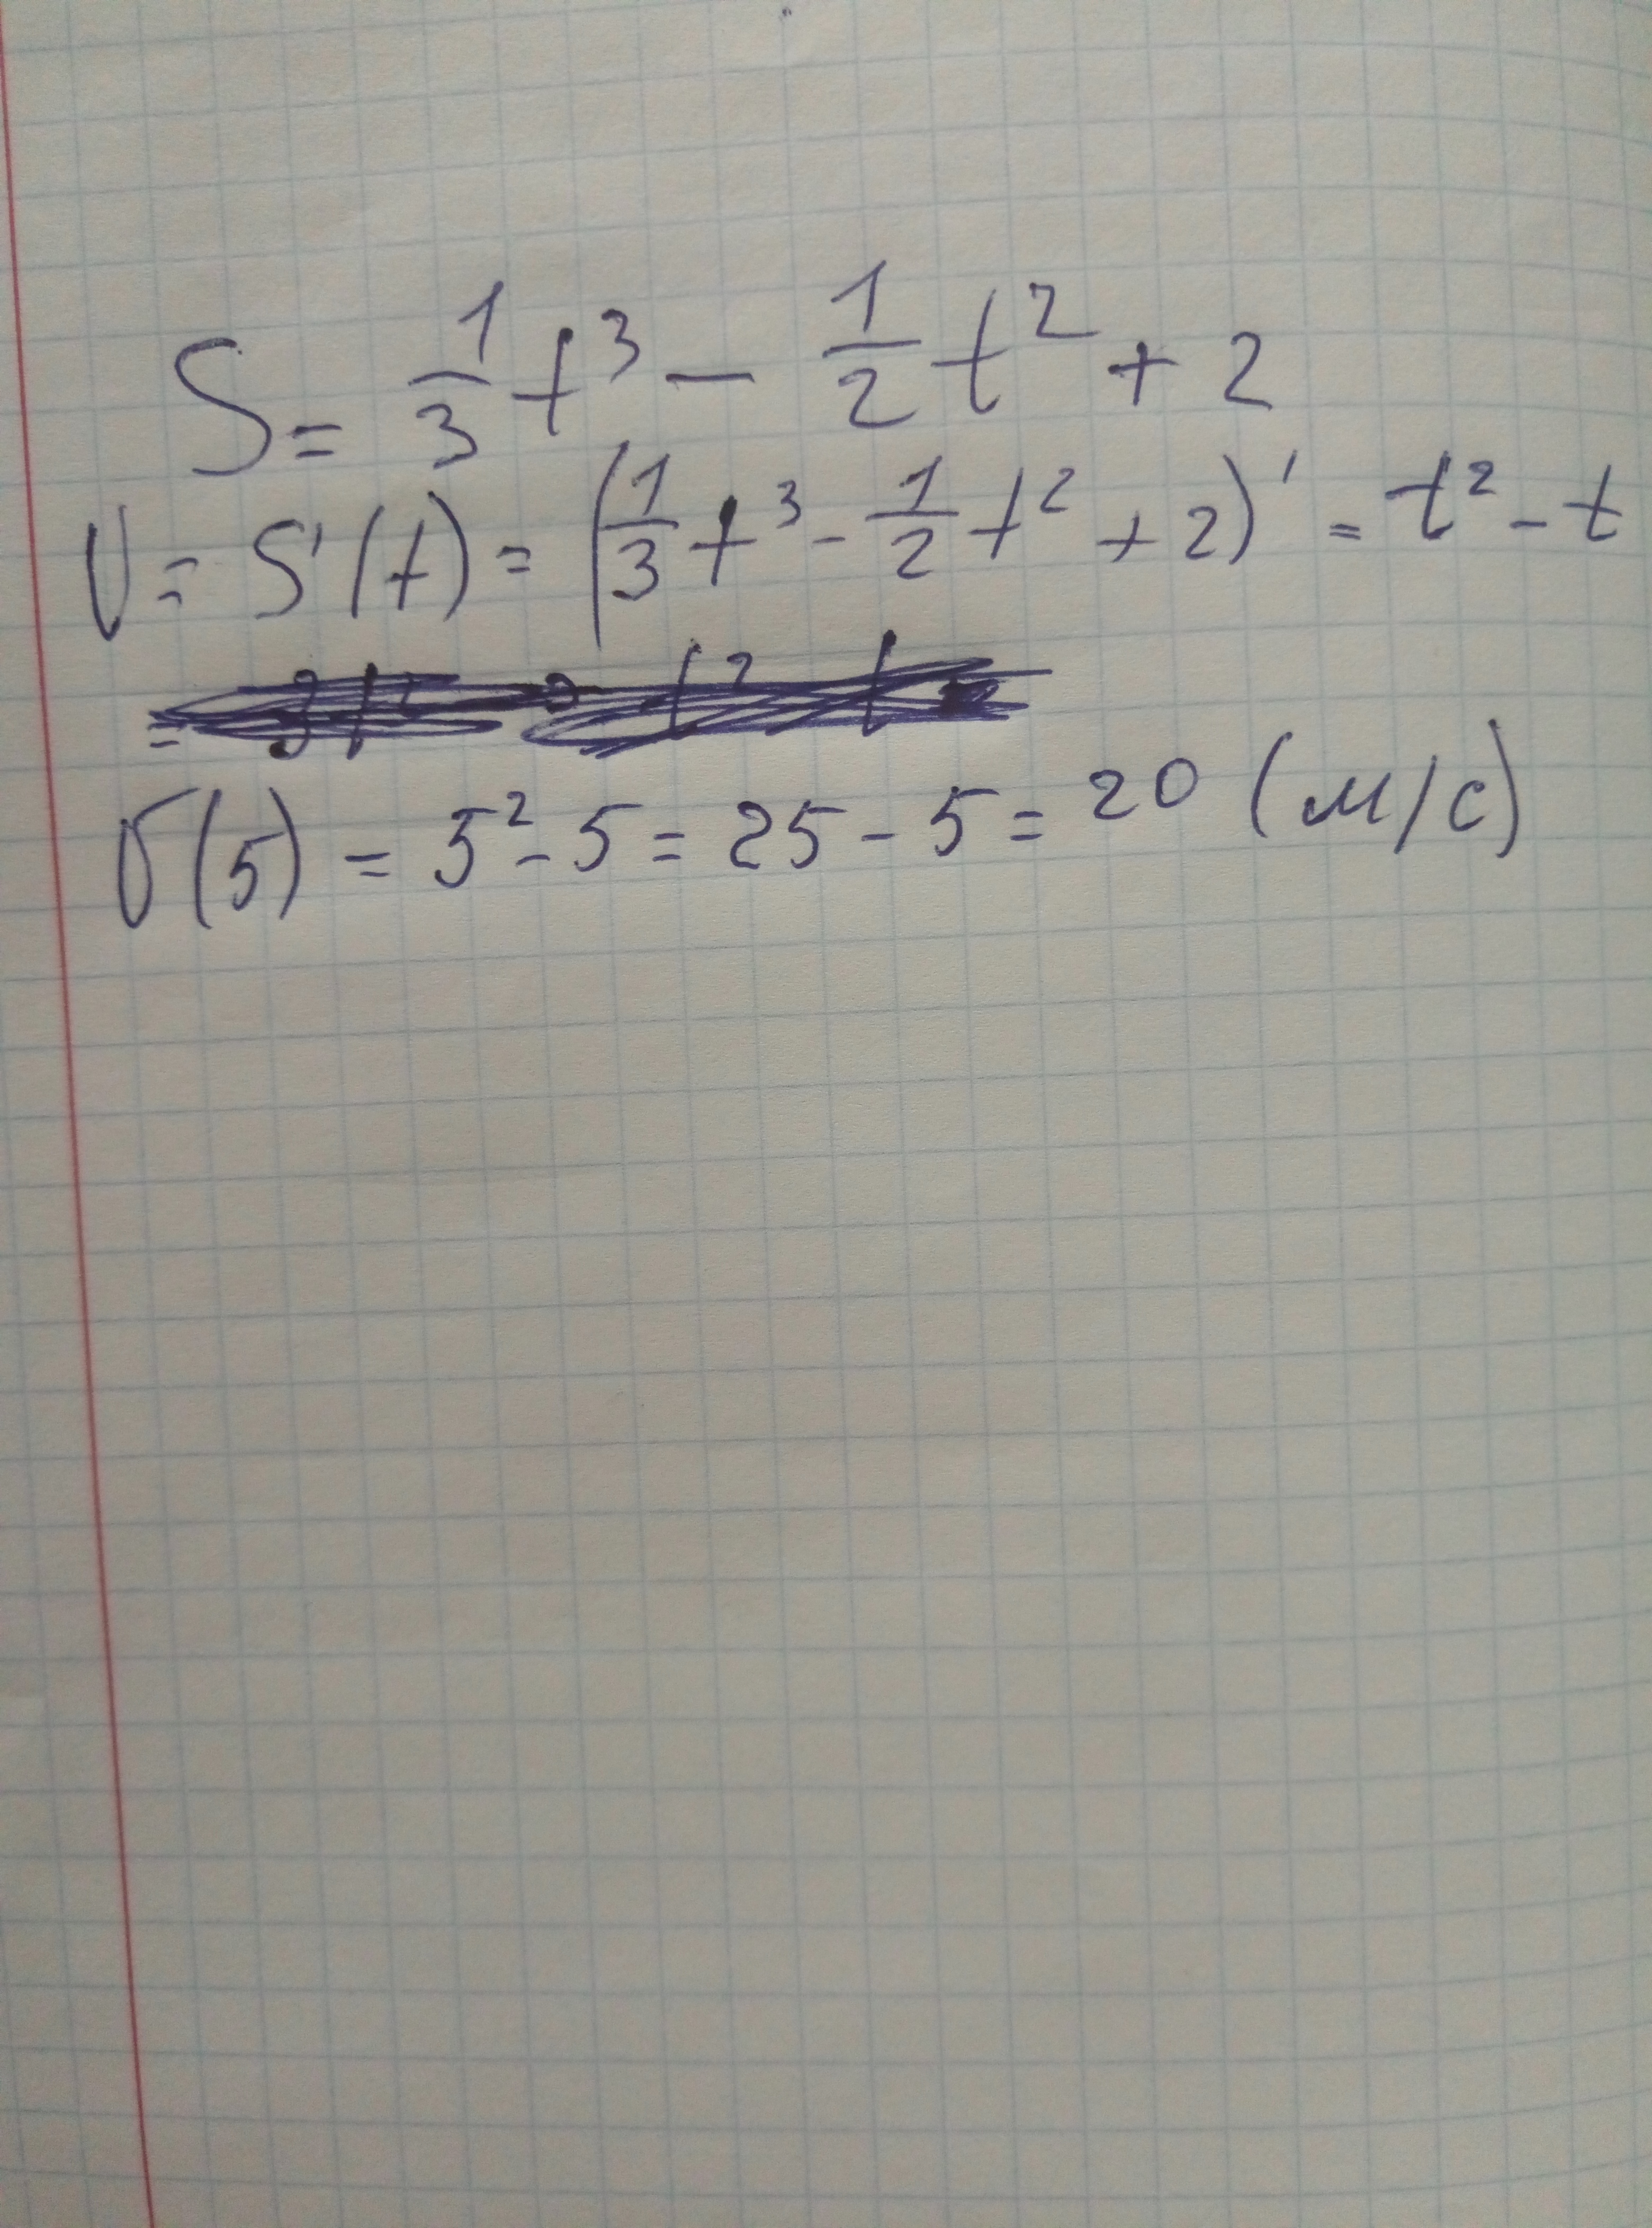 S = 1/3 t³ - 1/2 t² + 2
υ = S'(t) = (1/3 t³ - 1/2 t² + 2)' = t² - t
υ(5) = 5² - 5 = 25 - 5 = 20 (м/с)